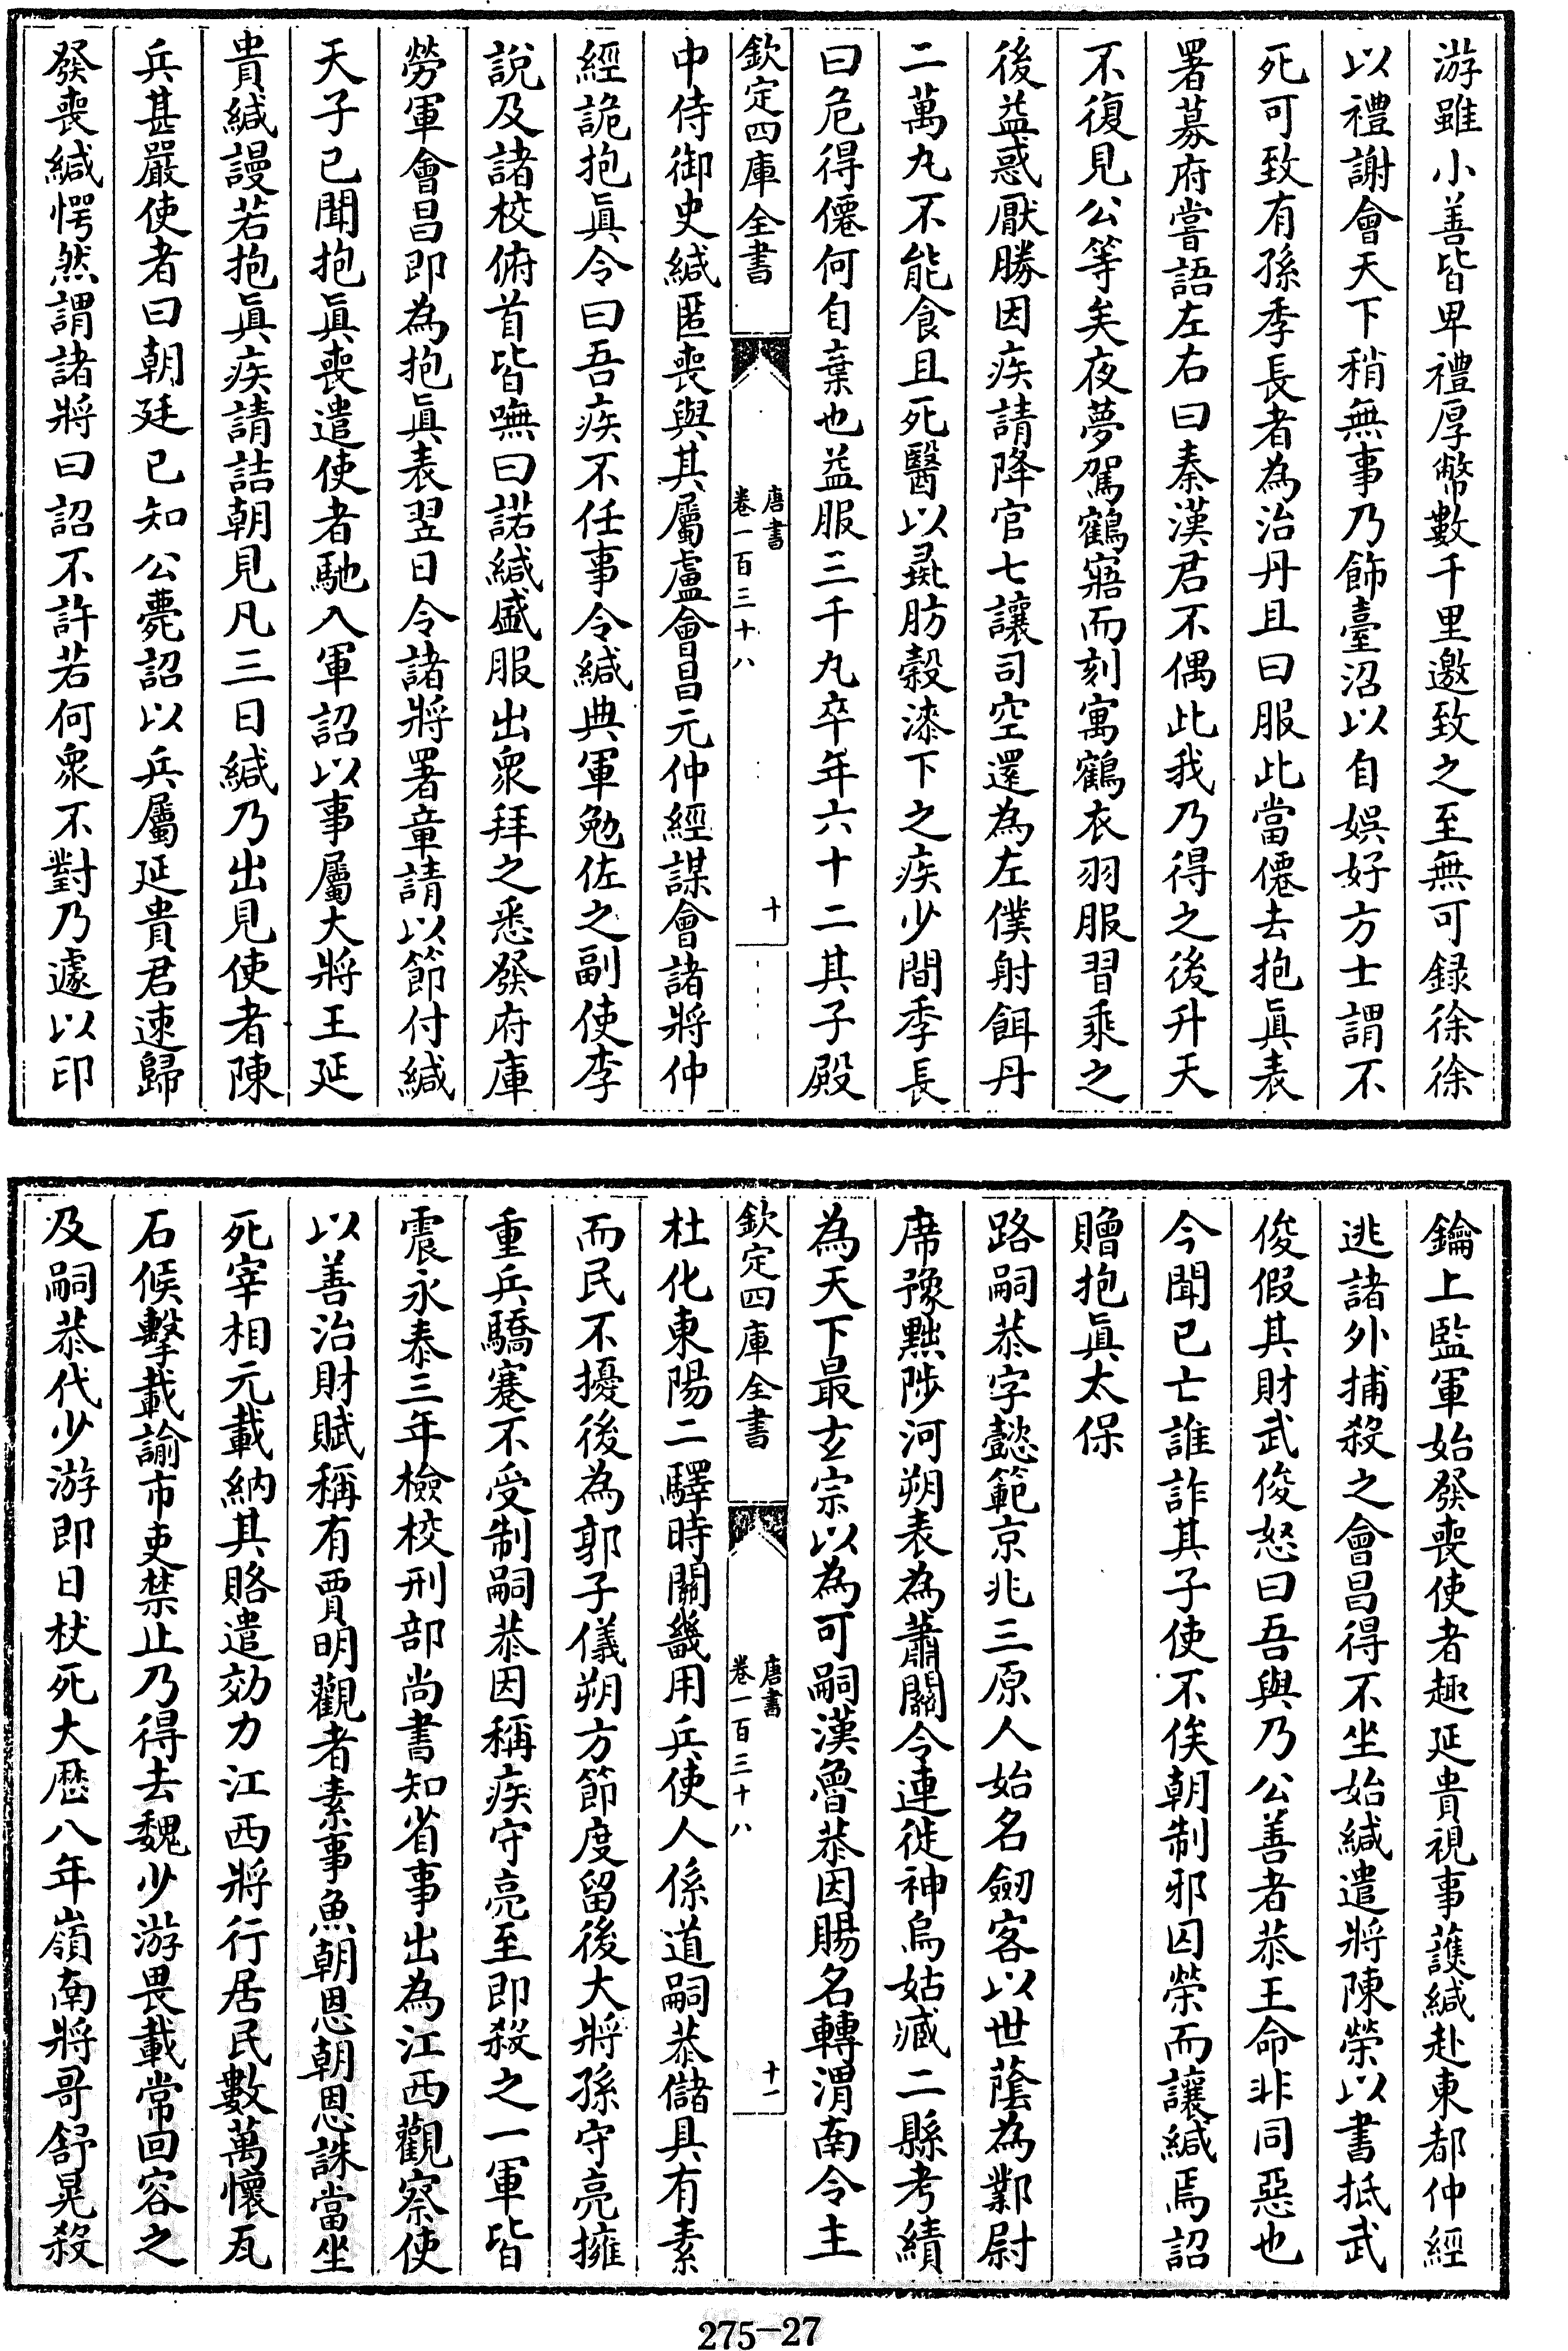 游雖小善皆卑禮厚幣數千里邀致之至無可録徐徐
以禮謝會天下稍無事乃飾臺沼以自娯好方士謂不
死可致有孫季長者為治丹且曰服此當僊去抱眞表
署募府嘗語左右曰秦漢君不偶此我乃得之後升天
不復見公等矣夜夢駕鶴寤而刻寓鶴衣羽服習乘之
後益惑厭勝因疾請降官七讓司空還為左僕射餌丹
二萬丸不能食且死醫以彘肪榖漆下之疾少間季長
曰危得僊何自棄也益服三千丸卒年六十二其子殿
欽定四庫全書
唐書
卷一百三十八
十
中侍御史緘匿喪與其屬盧會昌元仲經謀會諸將仲
經詭抱眞令曰吾疾不任事令緘典軍勉佐之副使李
說及諸校俯首皆嘸曰諾緘盛服出衆拜之悉發府庫
勞軍會昌即為抱眞表翌日令諸將署章請以節付緘
天子已聞抱眞喪遣使者馳入軍詔以事屬大將王延
貴緘謾若抱眞疾請詰朝見凡三日緘乃出見使者陳
兵甚嚴使者曰朝廷已知公薨詔以兵屬延貴君速歸
發喪緘愕然謂諸將曰詔不許若何衆不對乃遽以印
鑰上監軍始發喪使者趣延貴視事護緘赴東都仲經
逃諸外捕殺之會昌得不坐始緘遣將陳榮以書抵武
俊假其財武俊怒曰吾與乃公善者恭王命非同惡也
今聞已亡誰詐其子使不俟朝制邪囚榮而讓緘焉詔
贈抱眞太保
路嗣恭字懿範京兆三原人始名劒客以世蔭為鄴尉
席豫黜陟河朔表為蕭關令連徙神烏姑臧二縣考績
為天下最玄宗以為可嗣漢魯恭因賜名轉渭南令主
欽定四庫全書
唐書
卷一百三十八
十一
杜化東陽二驛時關畿用兵使人係道嗣恭儲具有素
而民不擾後為郭子儀朔方節度留後大將孫守亮擁
重兵驕蹇不受制嗣恭因稱疾守亮至即殺之一軍皆
震永泰三年檢校刑部尚書知省事出為江西觀察使
以善治財賦稱有賈明觀者素事魚朝恩朝恩誅當坐
死宰相元載納其賂遣効力江西將行居民數萬懷瓦
石候擊載諭市吏禁止乃得去魏少游畏載常回容之
及嗣恭代少游即日杖死大厯八年嶺南將哥舒晃殺
275-27